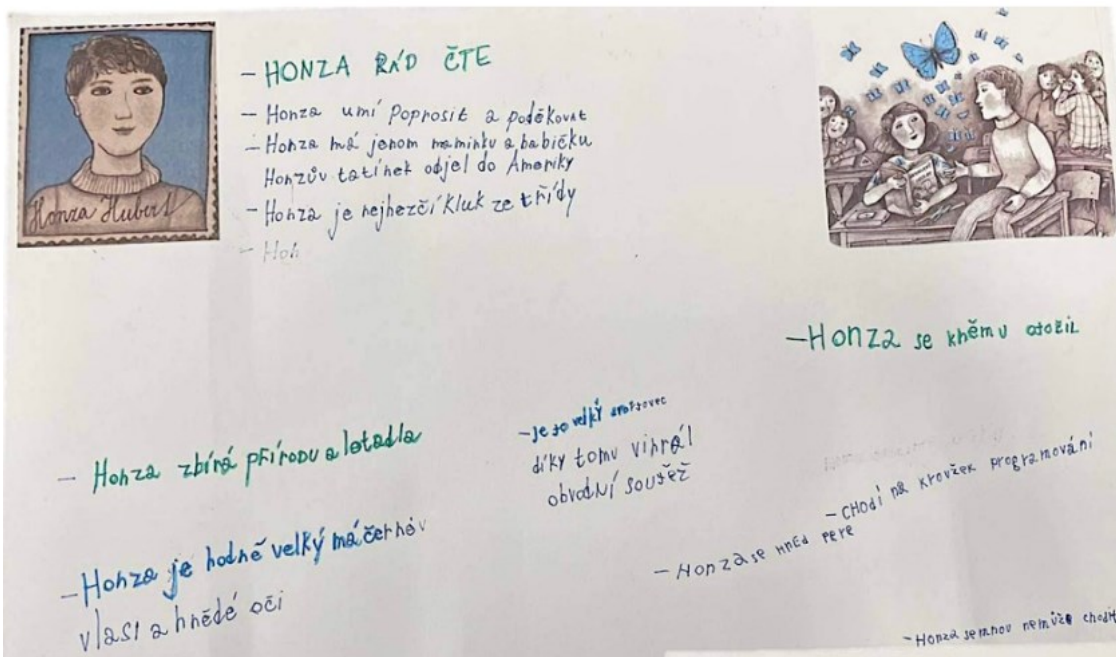 Honza Hubert
- HONZA RÁD ČTE
- Honza umí Poprosit a poděkovat
- Honza má jenom maminku a babičku
Honzův tatínek odjel do Ameriky
- Honza je nejhezčí kluk ze třídy
- Hon
- Honza se kněmu otočil
- Honza zbírá přírodu a letadla
- Je to velký sportovec
díky tomu vihrál
obvodní soutěž
- Honza je hodně velký má černév
vlasi a hnědé oči
- CHodí na kroužek programování
- Honza se hned pere
- Honza semnou nemůže chodit